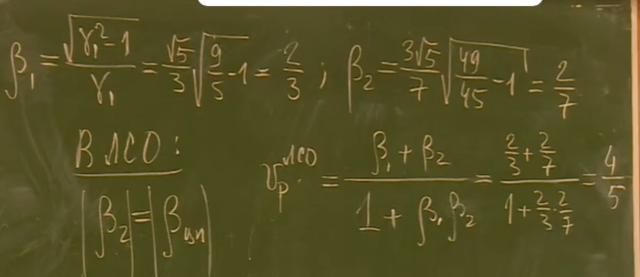 β₁ = √(γ₁² - 1) / γ₁ = √5/3 √(9/5 - 1) = 2/3 ; β₂ = 3√5/7 √(49/45 - 1) = 2/7
В ЛСО: υ_p^ЛСО = (β₁ + β₂) / (1 + β₁ β₂) = (2/3 + 2/7) / (1 + 2/3 · 2/7) = 4/5
|β₂| = |β_цм|